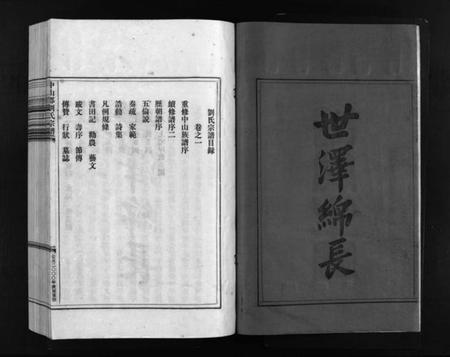 世澤綿長
劉氏宗譜目錄
卷之一
重修中山族譜序
續修譜序二
歷朝譜序
五倫說
奏疏 家範
誥勅 詩集
凡例規條
書田記 勸農 藝文
成文 壽序 節傳
傳贊 行狀 墓誌
中山郡劉氏宗譜